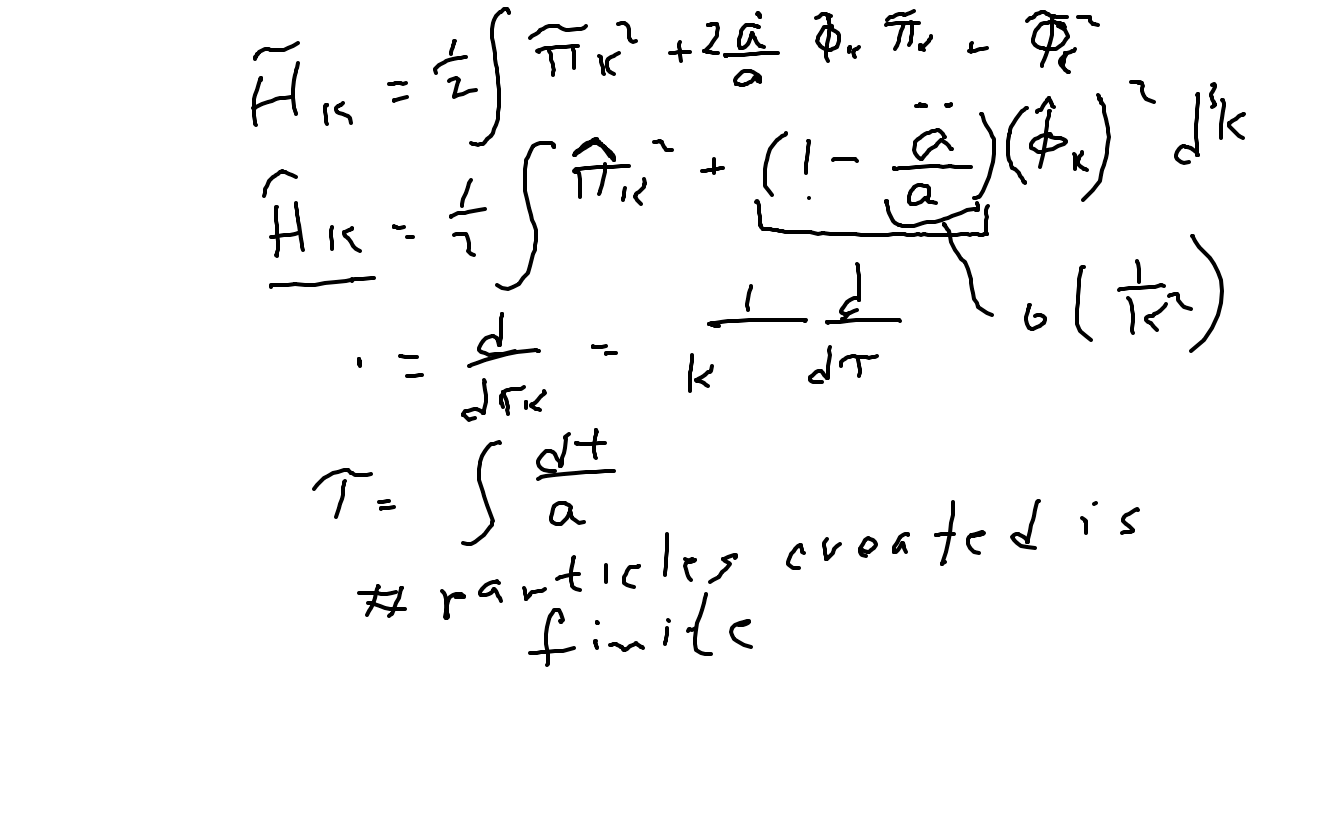 H̃_K = 1/2 ∫ π̃_K² + 2 ȧ/a Φ̃_K π̃_K + Φ̃_K²
Ĥ_K = 1/2 ∫ π̂_K² + (1 - ä/a)(Φ̂_K)² d³k
O(1/K²)
· = d/dτ_K = 1/k d/dτ
τ = ∫ dt/a
# particles created is
finite